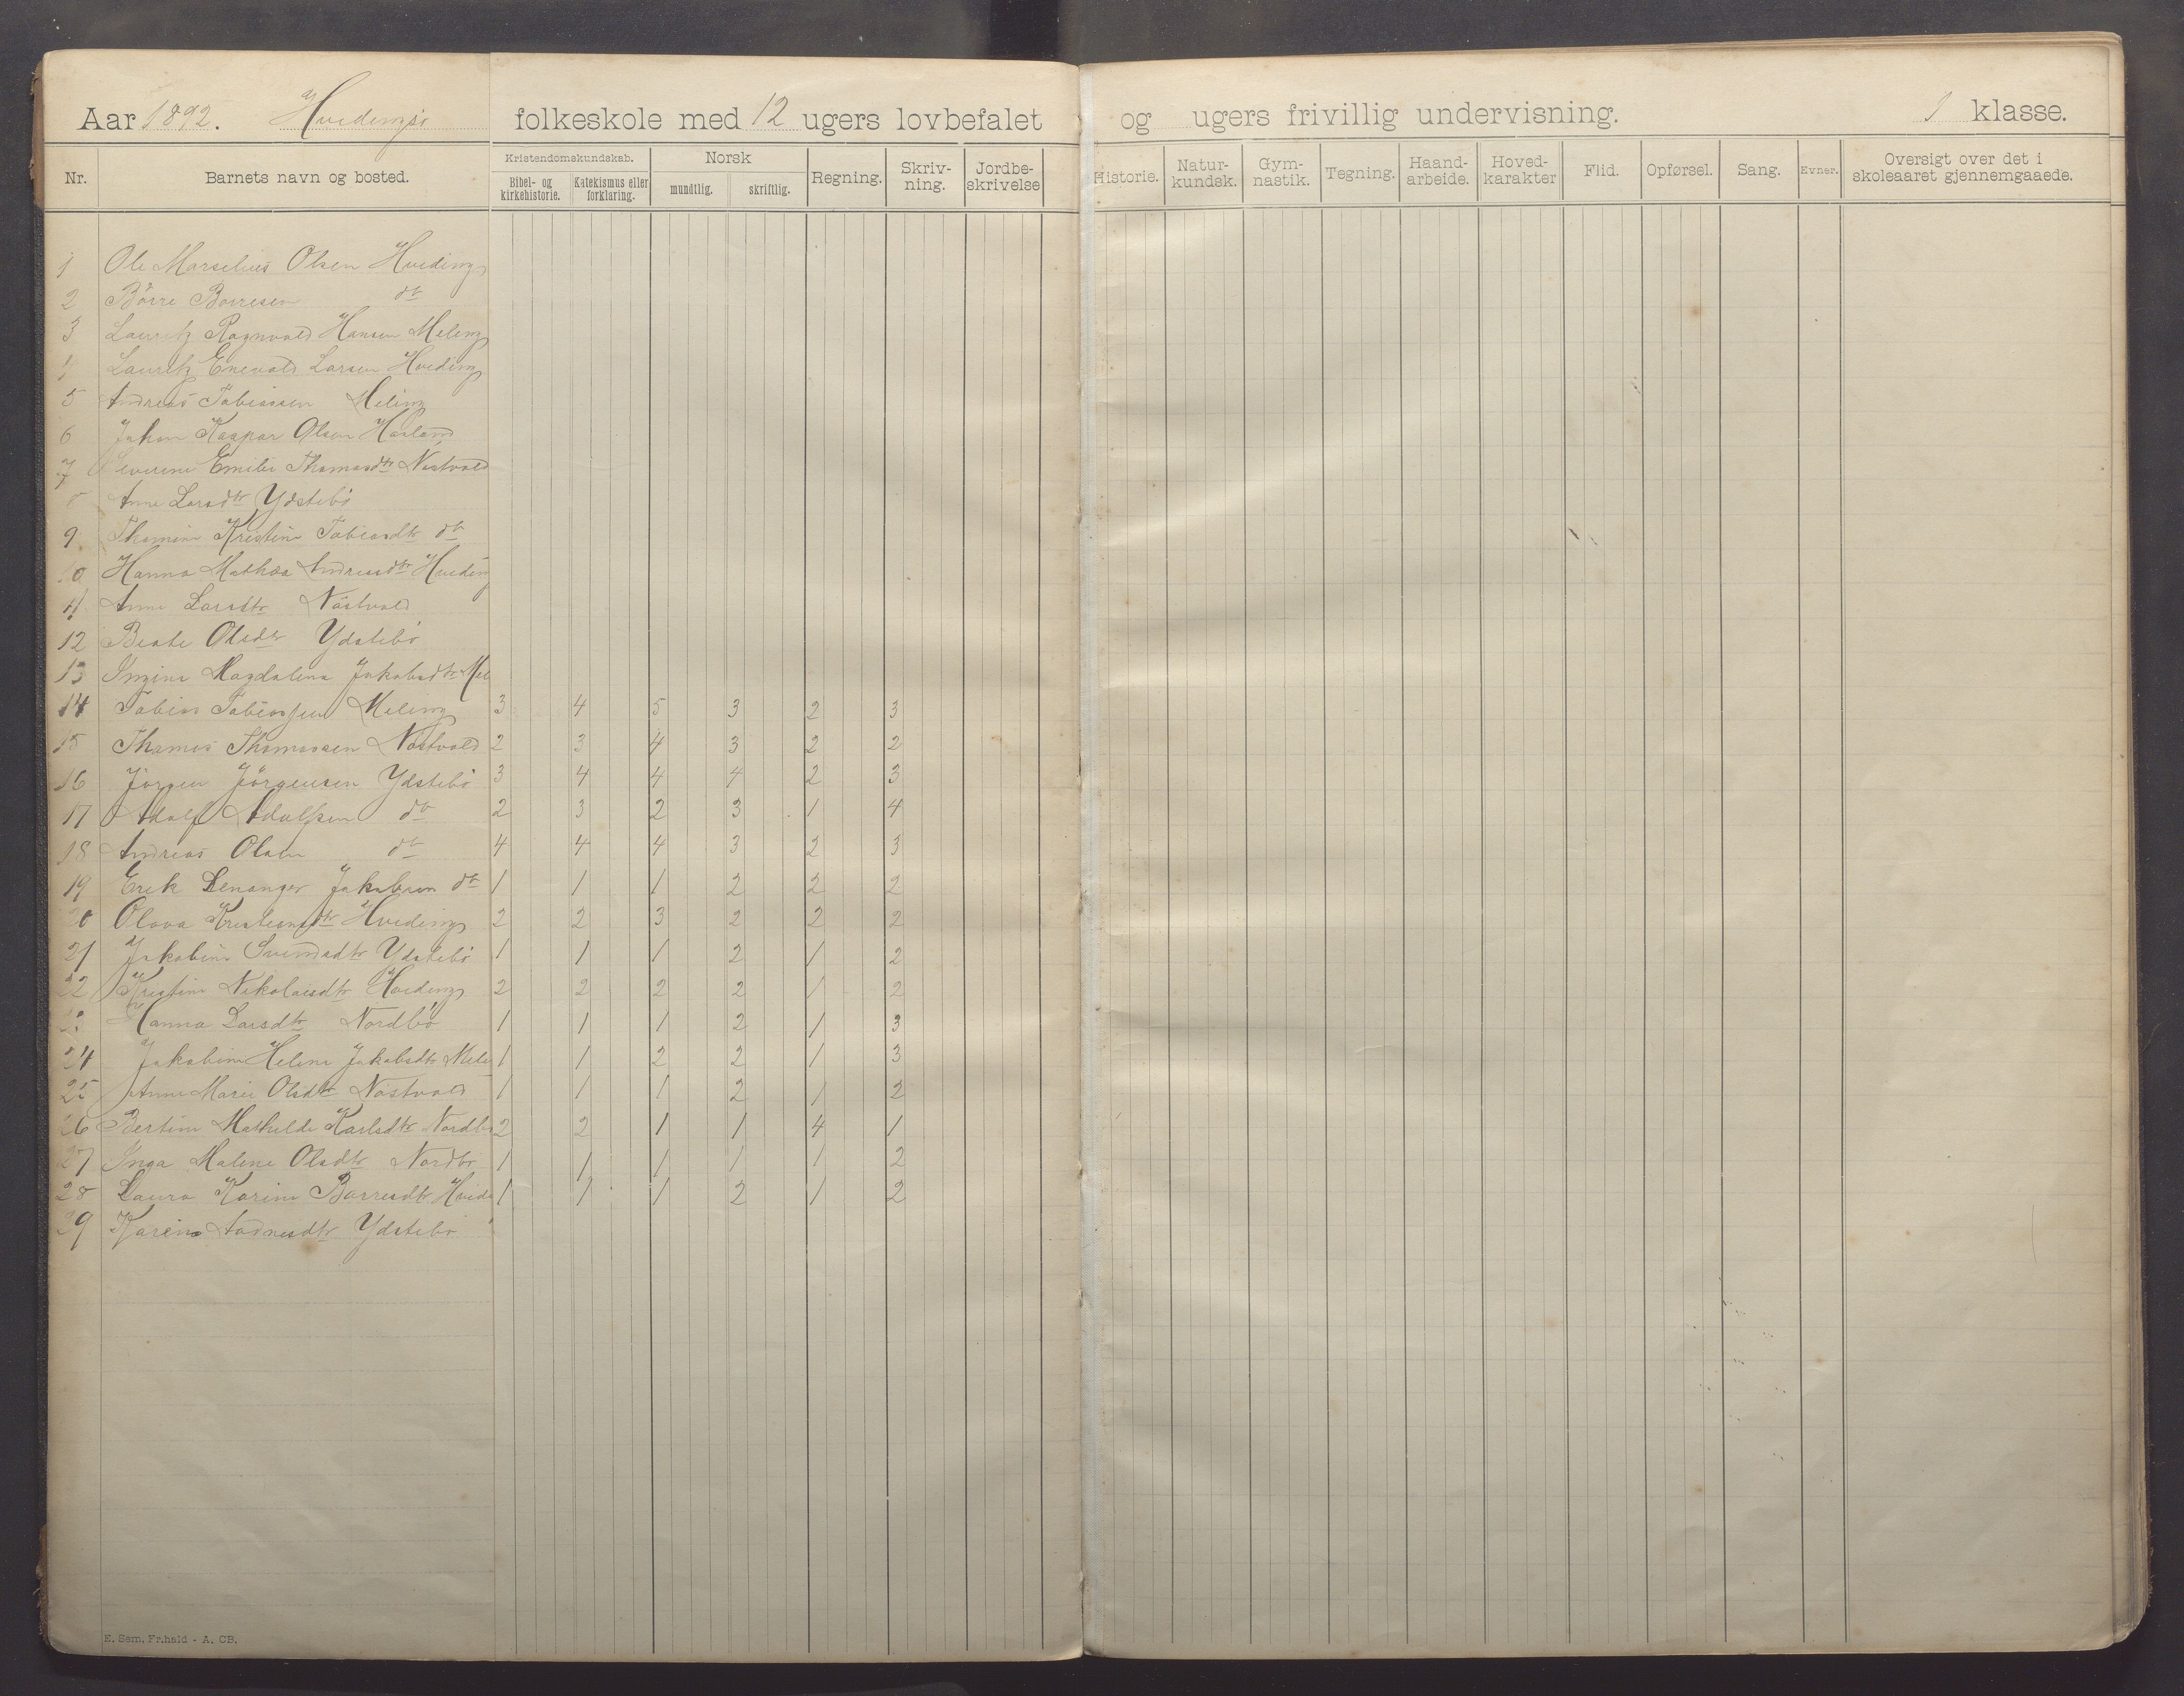 Aar 1892. Hvedingsø folkeskole med 12 ugers lovbefalet og ugers frivillig undervisning. 1 klasse.
Nr. Barnets navn og bosted. Kristendomskundskab. Norsk Regning. Skriv-ning. Jordbe-skrivelse Historie. Natur-kundsk. Gym-nastik. Tegning. Haand-arbeide. Hoved-karakter Flid. Opførsel. Sang. Evner. Oversigt over det i skoleaaret gjennemgaaede.
Bibel- og kirkehistorie. Katekismus eller forklaring. mundtlig. skriftlig.
1 Ole Marselius Olsen Hveding
2 Börre Borresen dt
3 Lauritz Ragnvald Hansen Meling
4 Lauritz Enevald Larsen Hveding
5 Andreas Tobiassen Meling
6 Johan Kaspar Olsen Haaland
7 Severine Emilie Thomasdtr Nästvold
8 Anne Larsdtr Ydstebö
9 Thomine Kristine Tobiasdtr dt
10 Hanna Mathea Andreasdtr Hveding
11 Anne Larsdtr Nästvold
12 Beate Olsdtr Ydstebö
13 Ingine Magdalena Jakobsdtr Mel
14 Tobias Tobiassen Meling 3 4 5 3 2 3
15 Thomas Thomassen Nästvold 2 3 4 3 2 2
16 Jörgen Jörgensen Ydstebö 3 4 4 4 2 3
17 Adolf Adolfsen dt 2 3 2 3 1 4
18 Andreas Olsen dt 4 4 4 3 2 3
19 Erik Lenanger Jakobsen dt 1 1 1 2 2 2
20 Olava Kristiansdtr Hveding 2 2 3 2 2 2
21 Jakobine Svendsdtr Ydstebö 1 1 1 2 1 2
22 Kristine Nikolaisdtr Hveding 2 2 2 2 1 2
23 Hanna Larsdtr Nordbö 1 1 1 2 1 3
24 Jakobine Helene Jakobsdtr Mele 1 1 2 2 1 3
25 Anne Marie Olsdtr Nästvold 1 1 1 2 1 2
26 Bertine Mathilde Karlsdtr Nordbö 2 2 1 1 4 1
27 Inga Malene Olsdtr Nordbö 1 1 1 1 1 2
28 Laura Karine Borresdtr Hvide 1 1 1 2 1 2
29 Karine Ydstebö
E. Sem, Fr.hald - A. CB.